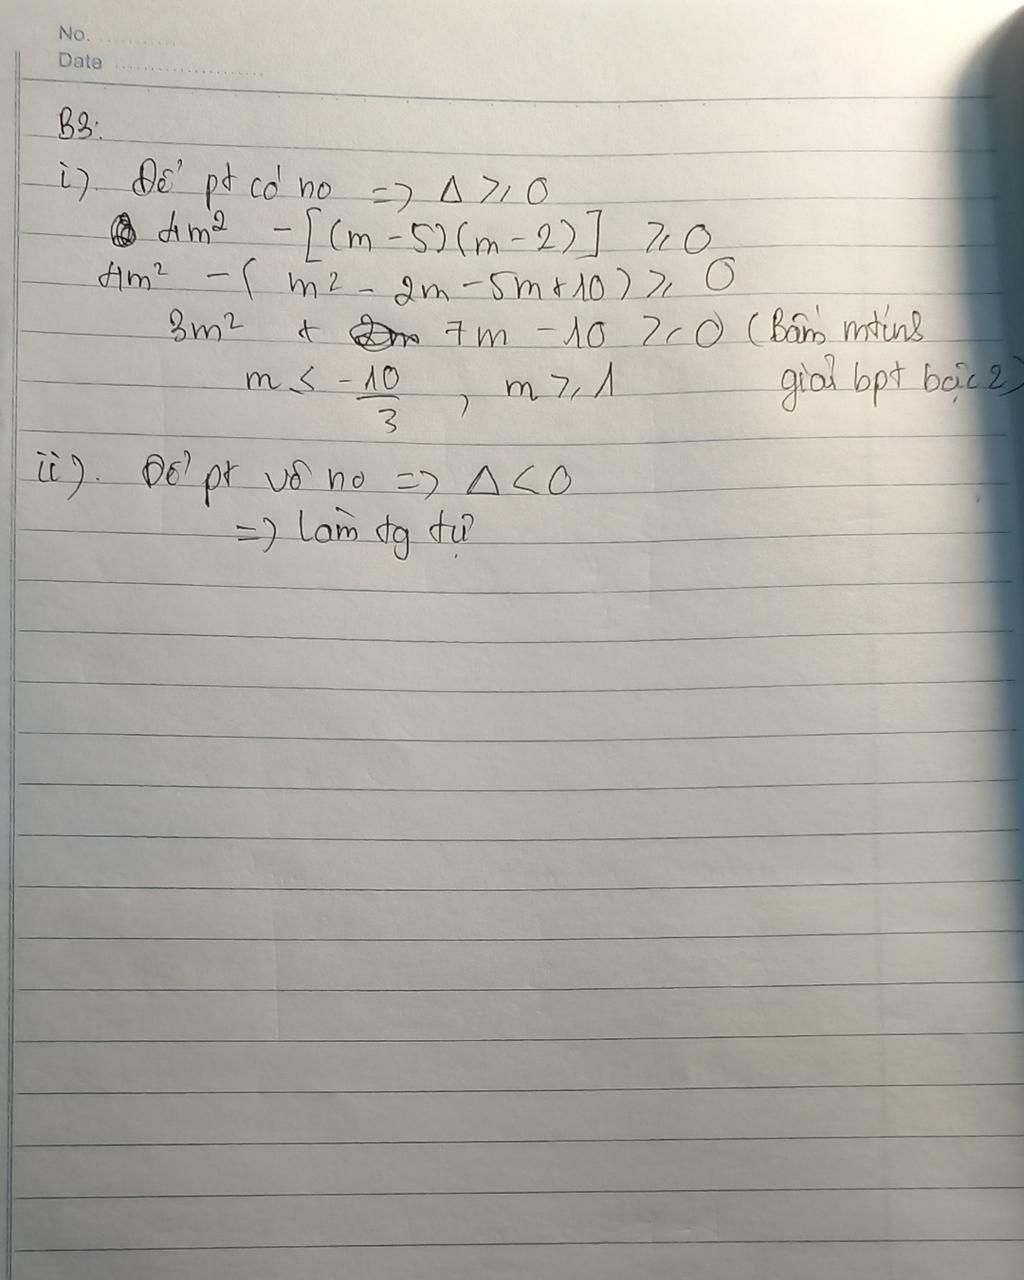 No. ............
Date ......................
B3:
i) Để pt có no => Δ ≥ 0
4m² - [(m - 5)(m - 2)] ≥ 0
4m² - ( m² - 2m - 5m + 10) ≥ 0
3m² + 7m - 10 ≥ 0 (Bấm mtính
m ≤ -10/3 , m ≥ 1 giải bpt bậc 2)
ii). Để pt vô no => Δ < 0
=> làm tg tự